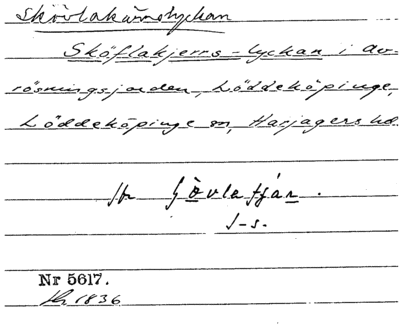 Skövlakärrstyckan
Sköflakjerrs-lyckan i av-
rösningsjorden, Löddeköpinge,
Löddeköpinge sn, Harjagers hd.
J-s.
Nr 5617.
1836